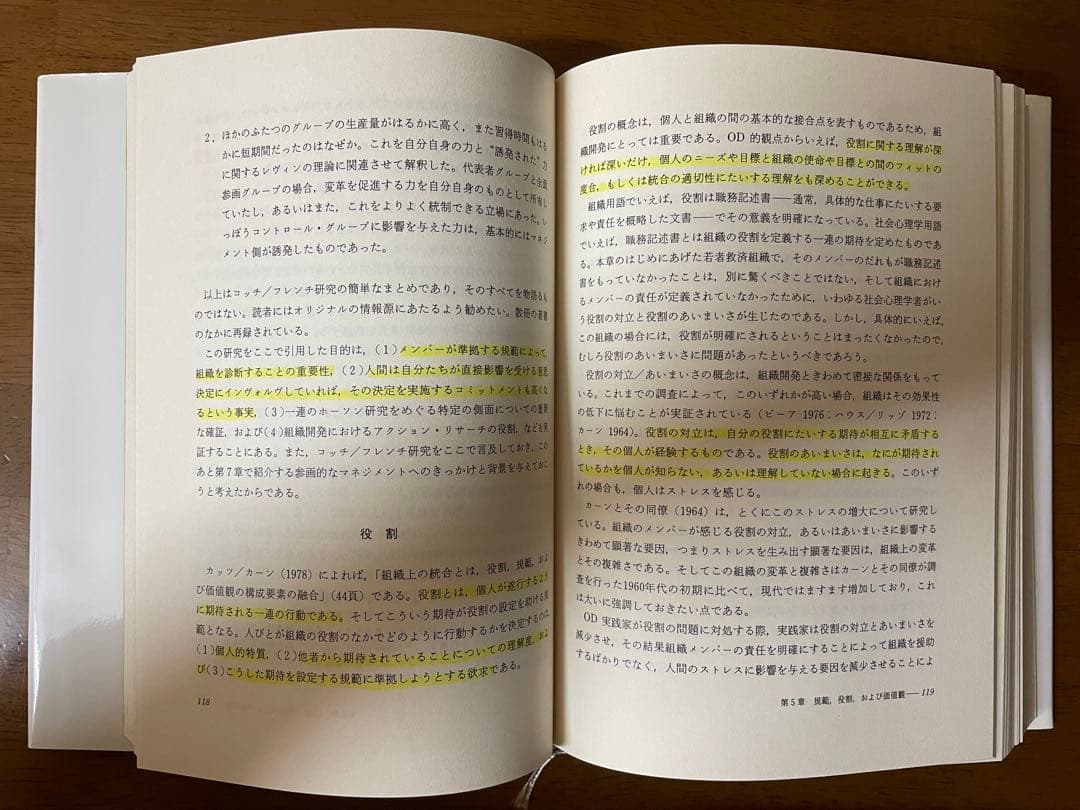 2. ほかのふたつのグループの生産量がはるかに高く，また習得時間もはる
かに短期間だったのはなぜか。これを自分自身の力と“誘発された”力
に関するレヴィンの理論に関連させて解釈した。代表者グループと全員
参画グループの場合，変革を促進する力を自分自身のものとして所有し
ていたし，あるいはまた，これをよりよく統制できる立場にあった。い
っぽうコントロール・グループに影響を与えた力は，基本的にはマネジ
メント側が誘発したものであった。
以上はコッチ／フレンチ研究の簡単なまとめであり，そのすべてを物語るも
のではない。読者にはオリジナルの情報源にあたるよう勧めたい。数冊の著書
のなかに再録されている。
この研究をここで引用した目的は，（1）メンバーが準拠する規範によって，
組織を診断することの重要性，（2）人間は自分たちが直接影響を受ける意思
決定にインヴォルヴしていれば，その決定を実施するコミットメントも高くな
るという事実，（3）一連のホーソン研究をめぐる特定の側面についての重要
な確証，および（4）組織開発におけるアクション・リサーチの役割，などを実
証することにある。また，コッチ／フレンチ研究をここで言及しておき，この
あと第7章で紹介する参画的なマネジメントへのきっかけと背景を与えておこ
うと考えたからである。
役割
カッツ／カーン（1978）によれば，「組織上の統合とは，役割，規範，およ
び価値観の構成要素の融合」（44頁）である。役割とは，個人が遂行するよう
に期待される一連の行動である。そしてこういう期待が役割の設定を助ける規
範となる。人びとが組織の役割のなかでどのように行動するかを決定するのは，
（1）個人的特質，（2）他者から期待されていることについての理解度，およ
び（3）こうした期待を設定する規範に準拠しようとする欲求である。
118
役割の概念は，個人と組織の間の基本的な接合点を表すものであるため，組
織開発にとっては重要である。OD 的観点からいえば，役割に関する理解が深
ければ深いだけ，個人のニーズや目標と組織の使命や目標との間のフィットの
度合，もしくは統合の適切性にたいする理解をも深めることができる。
組織用語でいえば，役割は職務記述書――通常，具体的な仕事にたいする要
求や責任を概略した文書――でその意義を明確になっている。社会心理学用語
でいえば，職務記述書とは組織の役割を定義する一連の期待を定めたものであ
る。本章のはじめにあげた若者救済組織で，そのメンバーのだれもが職務記述
書をもっていなかったことは，別に驚くべきことではない，そして組織におけ
るメンバーの責任が定義されていなかったために，いわゆる社会心理学者がい
う役割の対立と役割のあいまいさが生じたのである。しかし，具体的にいえば，
この組織の場合には，役割が明確にされるということはまったくなかったので，
むしろ役割のあいまいさに問題があったというべきであろう。
役割の対立／あいまいさの概念は，組織開発ときわめて密接な関係をもって
いる。これまでの調査によって，このいずれかが高い場合，組織はその効果性
の低下に悩むことが実証されている（ビーア 1976；ハウス／リッゾ 1972；
カーン 1964）。役割の対立は，自分の役割にたいする期待が相互に矛盾する
とき，その個人が経験するものである。役割のあいまいさは，なにが期待され
ているかを個人が知らない，あるいは理解していない場合に起きる。このいず
れの場合も，個人はストレスを感じる。
カーンとその同僚（1964）は，とくにこのストレスの増大について研究し
ている。組織のメンバーが感じる役割の対立，あるいはあいまいさに影響する
きわめて顕著な要因，つまりストレスを生み出す顕著な要因は，組織上の変革
とその複雑さである。そしてこの組織の変革と複雑さはカーンとその同僚が調
査を行った1960年代の初期に比べて，現代ではますます増加しており，これ
は大いに強調しておきたい点である。
OD 実践家が役割の問題に対処する際，実践家は役割の対立とあいまいさを
減少させ，その結果組織メンバーの責任を明確にすることによって組織を援助
するばかりでなく，人間のストレスに影響を与える要因を減少させることによ
第5章 規範，役割，および価値観――119